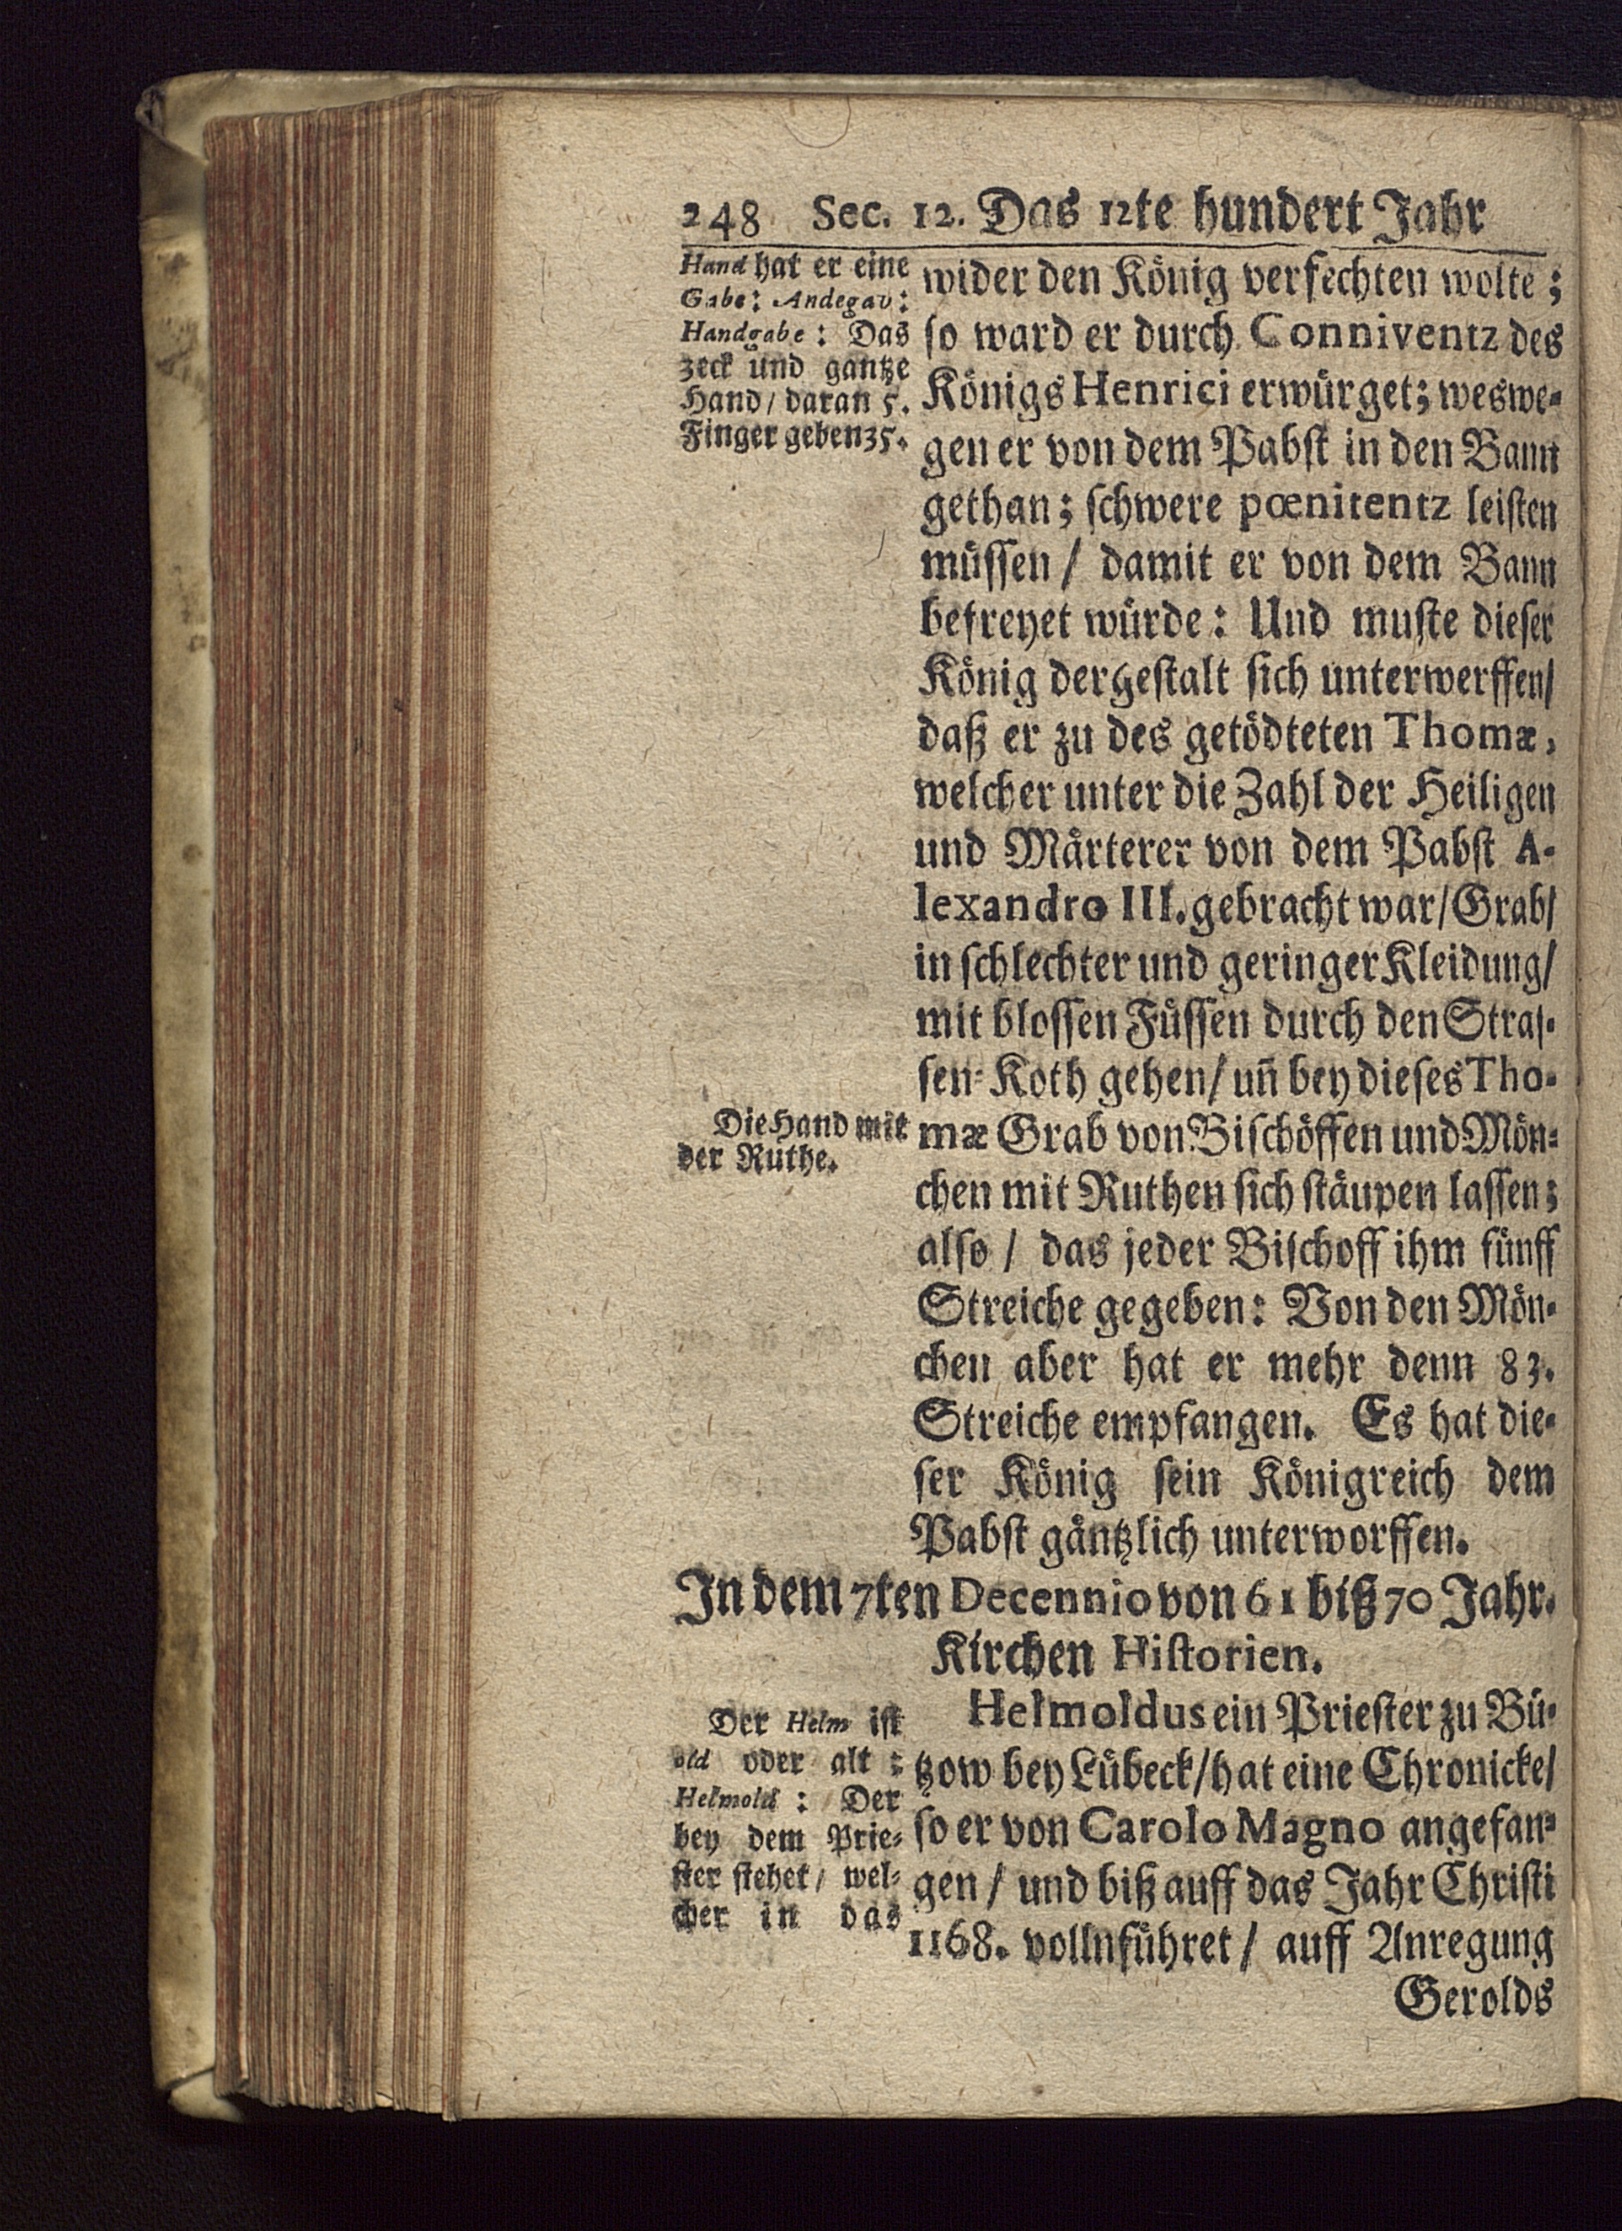 248 Sec. 12. Das 12te hundert Jahr
Hand hat er eine
Gabe: Andegav:
Handgabe: Das
zeck und gantze
Hand/ daran 5.
Finger geben 35.
wider den König verfechten wolte;
so ward er durch Conniventz des
Königs Henrici erwürget; weswe-
gen er von dem Pabst in den Bann
gethan; schwere pœnitentz leisten
müssen/ damit er von dem Bann
befreyet würde: Und muste dieser
König dergestalt sich unterwerffen/
daß er zu des getödteten Thomæ,
welcher unter die Zahl der Heiligen
und Märterer von dem Pabst A-
lexandro III. gebracht war/ Grab/
in schlechter und geringer Kleidung/
mit blossen Füssen durch den Stras-
sen-Koth gehen/ uñ bey dieses Tho-
Die Hand mit
der Ruthe.
mæ Grab von Bischöffen und Mön-
chen mit Ruthen sich stäupen lassen;
also/ das jeder Bischoff ihm fünff
Streiche gegeben: Von den Mön-
chen aber hat er mehr denn 83.
Streiche empfangen. Es hat die-
ser König sein Königreich dem
Pabst gäntzlich unterworffen.
In dem 7ten Decennio von 61 biß 70 Jahr.
Kirchen Historien.
Der Helm ist
old oder alt:
Helmold: Der
bey dem Prie-
ster stehet/ wel-
cher in das
Helmoldus ein Priester zu Bü-
tzow bey Lübeck/ hat eine Chronicke/
so er von Carolo Magno angefan-
gen/ und biß auff das Jahr Christi
1168. vollnführet/ auff Anregung
Gerolds